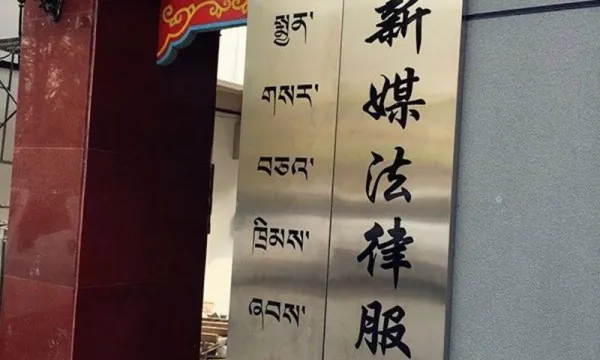 སྨྱན་
གསར་
བཅའ་
ཁྲིམས་
ཞབས་
新媒法律服